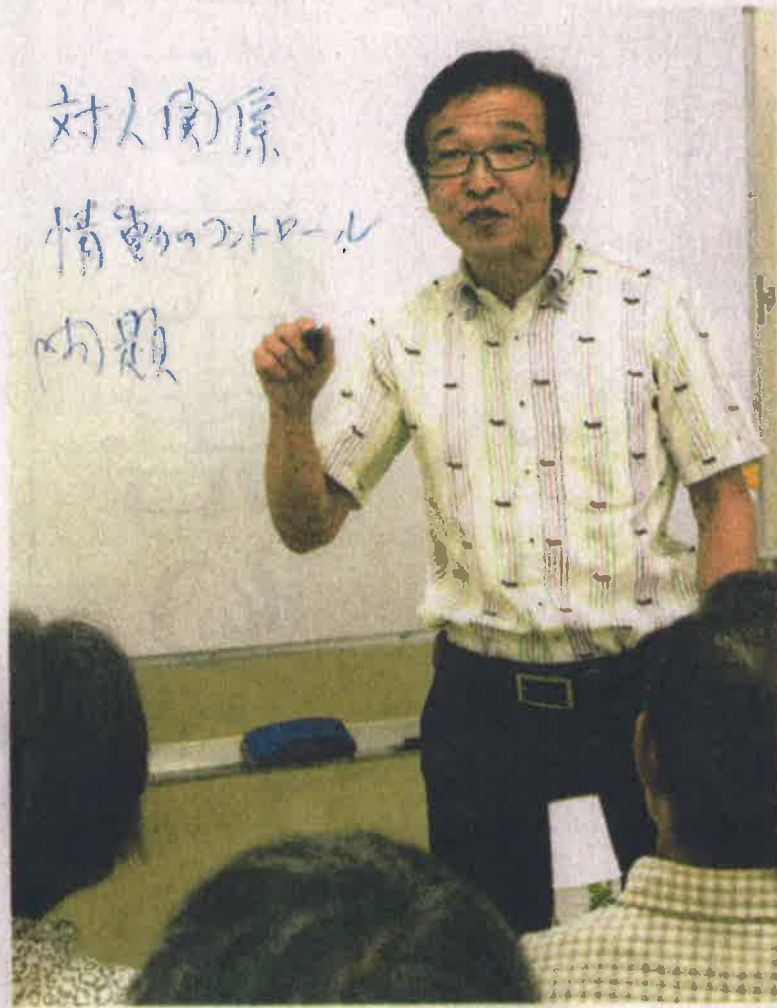 対人関係
情動のコントロール
問題